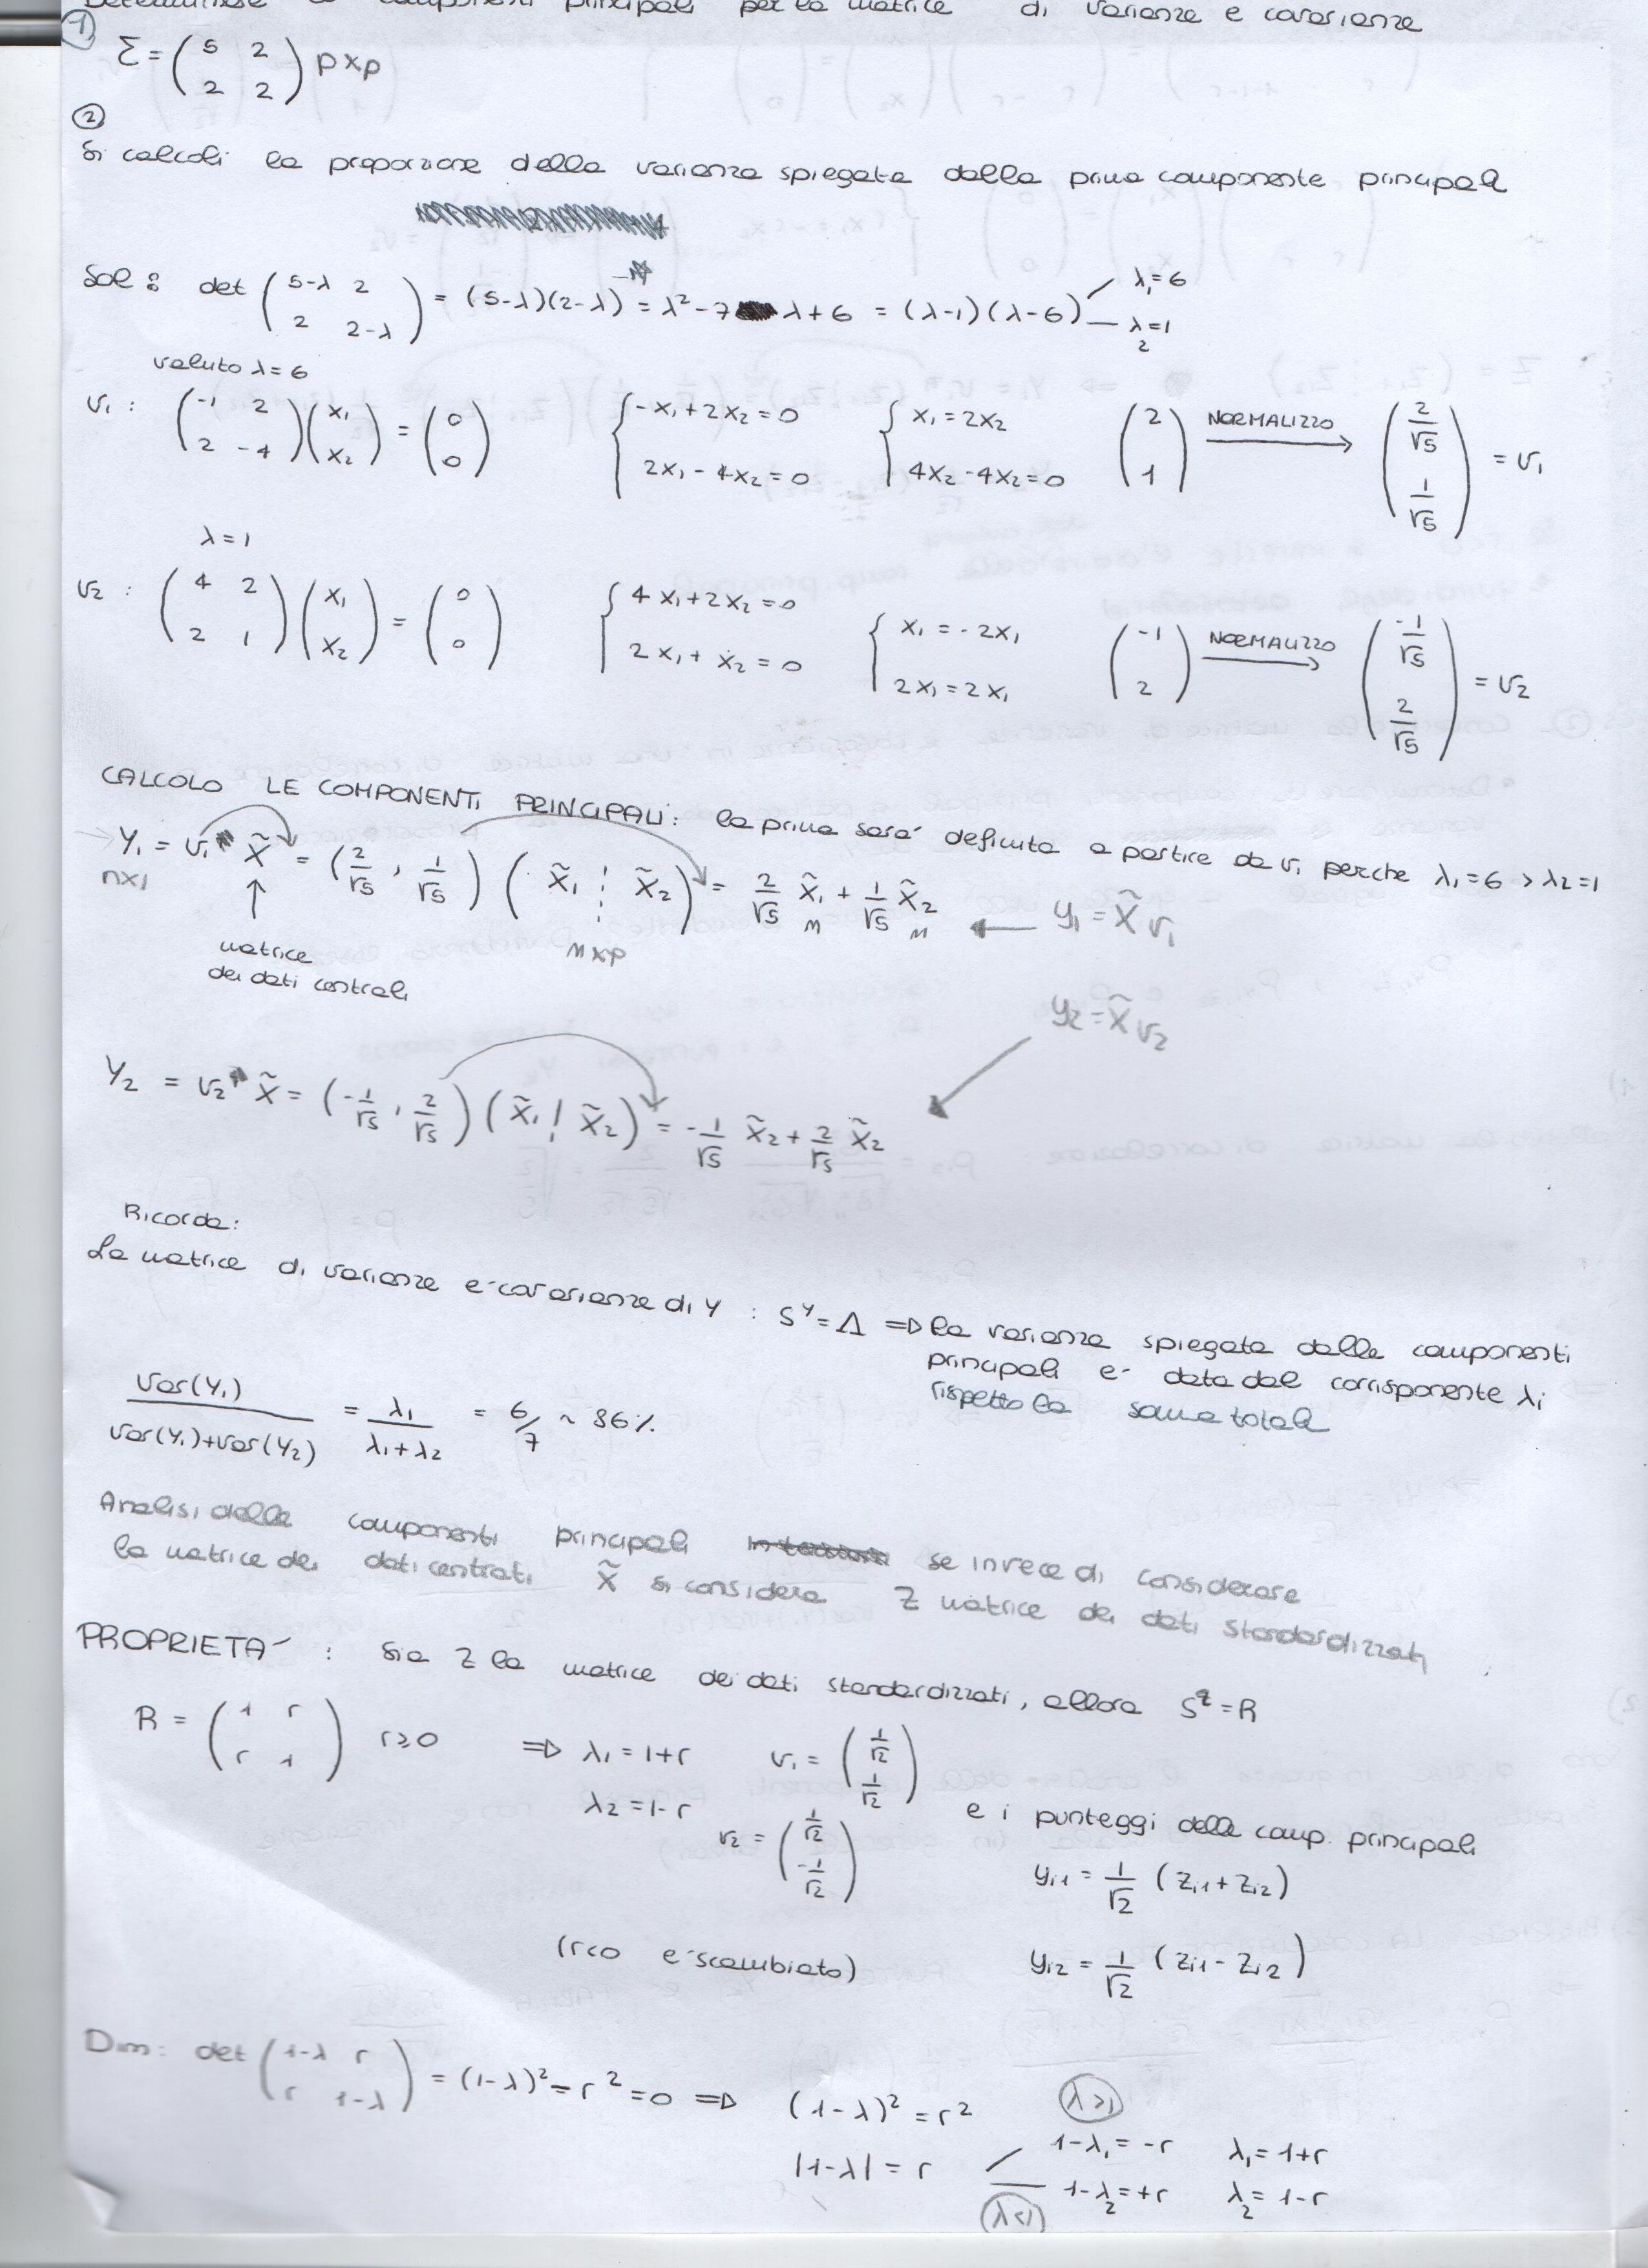 Determinare le componenti principali per la matrice di varianze e covarianze
① Σ = (5 2; 2 2) p×p
②
Si calcoli la proporzione della varianza spiegata dalla prima componente principale
Sol: det (5-λ 2; 2 2-λ) = (5-λ)(2-λ) -4 = λ² - 7λ + 6 = (λ-1)(λ-6) λ₁=6 λ₂=1
valuto λ=6
v₁ : (-1 2; 2 -4)(x₁; x₂) = (0; 0) {-x₁+2x₂=0; 2x₁-4x₂=0 {x₁=2x₂; 4x₂-4x₂=0 (2; 1) NORMALIZZO → (2/√5; 1/√5) = v₁
λ=1
v₂ : (4 2; 2 1)(x₁; x₂) = (0; 0) {4x₁+2x₂=0; 2x₁+x₂=0 {x₁=-2x₁; 2x₁=2x₁ (-1; 2) NORMALIZZO → (-1/√5; 2/√5) = v₂
CALCOLO LE COMPONENTI PRINCIPALI: la prima sarà definita a partire da v₁ perche λ₁=6 > λ₂=1
→ Y₁ = v₁ X̃ = (2/√5, 1/√5)(x̃₁ ⋮ x̃₂) = 2/√5 x̃₁ + 1/√5 x̃₂ ← y₁ = X̃ v₁
n×1 ↑ n×p n n
matrice
dei dati centrali
y₂ = X̃ v₂
Y₂ = v₂ X̃ = (-1/√5, 2/√5)(x̃₁ ⋮ x̃₂) = -1/√5 x̃₂ + 2/√5 x̃₂
Ricorda:
La matrice di varianze e covarianze di Y : Sʸ = Λ ⇒ la varianza spiegata dalle componenti
principali e' data dal corrisponente λi
rispetto la soma totale
Var(Y₁) / Var(Y₁)+Var(Y₂) = λ₁ / λ₁+λ₂ = 6/7 ~ 86%
Analisi delle componenti principali se invece di considerare
la matrice dei dati centrati X̃ si considera Z matrice dei dati standardizzati
PROPRIETA' : Sia Z la matrice dei dati standardizzati, allora Sᶻ = R
R = (1 r; r 1) r≥0 ⇒ λ₁ = 1+r v₁ = (1/√2; 1/√2)
λ₂ = 1-r v₂ = (1/√2; -1/√2) e i punteggi delle comp. principali
yᵢ₁ = 1/√2 (zᵢ₁ + zᵢ₂)
(r<0 e' scambiato) yᵢ₂ = 1/√2 (zᵢ₁ - zᵢ₂)
Dim: det (1-λ r; r 1-λ) = (1-λ)² - r² = 0 ⇒ (1-λ)² = r² λ>1
|1-λ| = r 1-λ₁ = -r λ₁ = 1+r
λ<1 1-λ₂ = +r λ₂ = 1-r